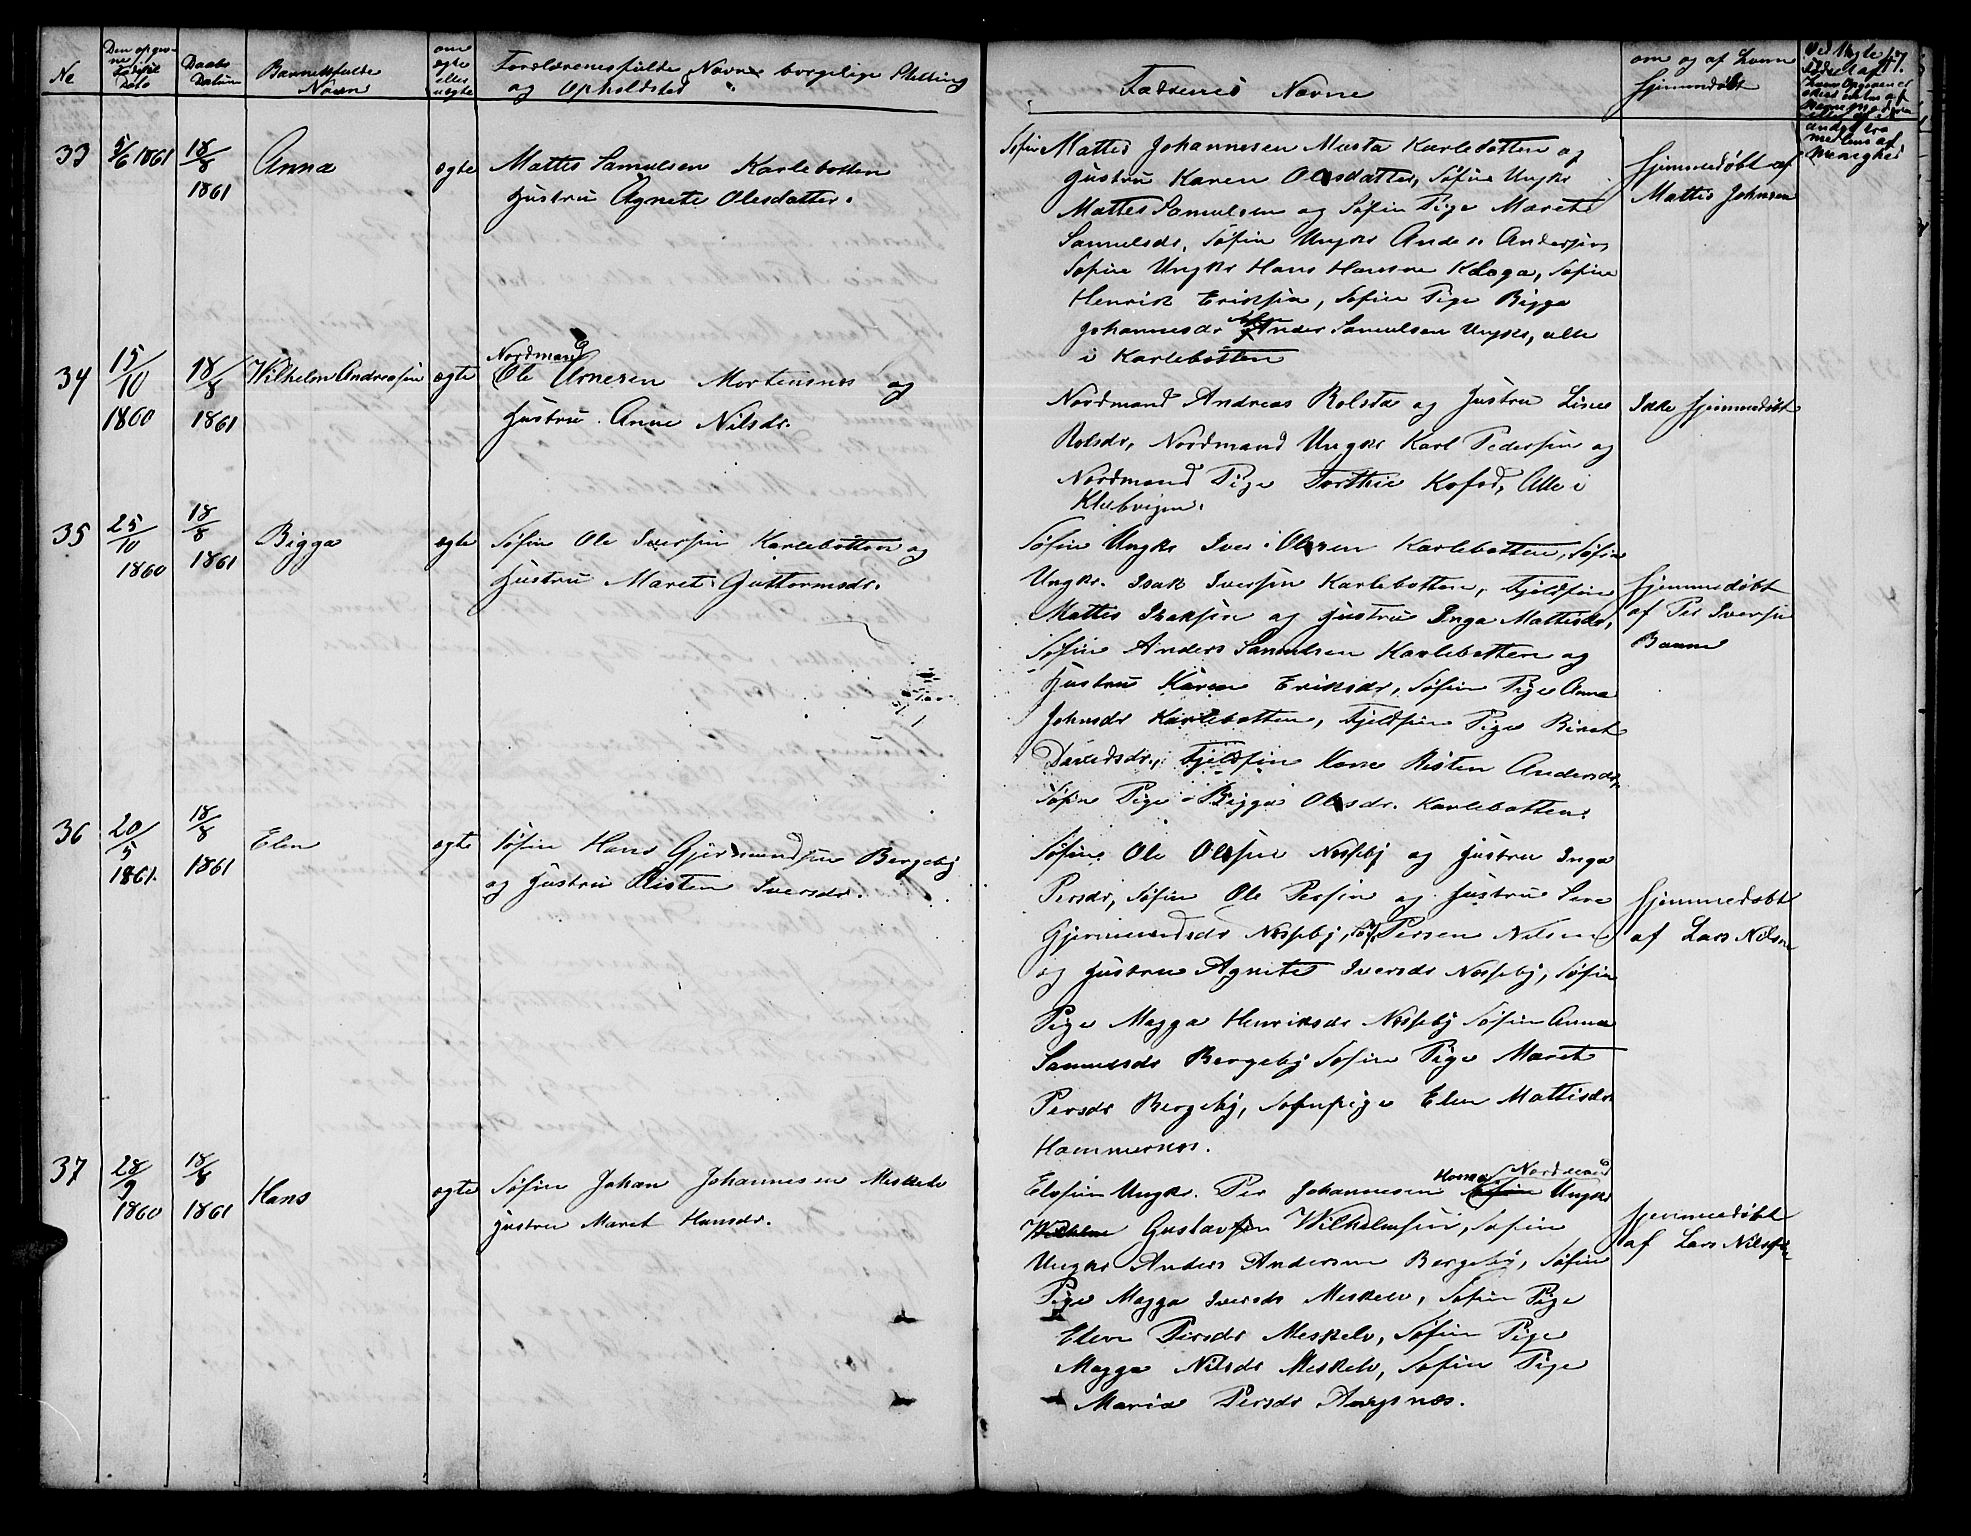 No
Den opgivne Fødsels Dato
Daabs Datum
Barnets fulde Navn
om ægte eller uægte
Forældrenes fulde Navne borgelige Stilling
og Opholdsted
Faddernes Navne
om og af hvem
hjemmedøbt
33
5/6 1861
18/8
1861
Anna
ægte
Mattis Samulsen Karlebotten
Hustru Agnete Olesdatter.
Søfin Mattis Johannesen Musta Karlebotten og
Hustru Karen Olesdatter, Søfin Ungkr
Mattis Samulsen og Søfin Pige Maret
Samuelsdr, Søfin Ungkr Anders Andersen
Søfin Ungkr Hans Hansen Kloga, Søfin
Henrik Eriksen, Søfin Pige Bigga
Johannesdr Anders Samulsen Ungkr, alle
i Karlebotten
hjemmedøbt af
Mattis Johnsen
34
15/10
1860
18/8
1861
Wilhelm Andreasen
ægte
Nordmand
Ole Arnesen Mortensnes og
Hustru Anne Nilsdr.
Nordmand Andreas Rolsta og Hustru Lisee
Rolsdr, Nordmand Ungkr Karl Pedersen og
Nordmand Pige Dorthie Kofod, Alle i
Klubvigen.
Ikke hjemmedøbt
35
25/10
1860
18/8
1861
Bigga
ægte
Søfin Ole Iversen Karlebotten og
Hustru Maret Guttormsdr.
Søfin Ungkr Iver Olesen Karlebotten, Søfin
Ungkr. Isak Iversen Karlebotten, Fjeldfin
Mattis Isaksen og Hustru Inga Mattisdr,
Søfin Anders Samulsen Karlebotten og
Hustru Karen Eriksdr, Søfin Pige Anna
Johnsdr Karlebotten, Fjeldfin Pige Biret
Davidsdr, Fjeldfin Kone Risten Andersdr,
Søfin Pige Bigga Olesdr. Karlebotten.
hjemmedøbt
af Per Iversen
Banne
36
20/5
1861.
18/8
1861
Elen
ægte
Søfin Hans Gjermundsen Bergeby
og Hustru Risten Iversdr.
Søfin Ole Olsen Nesseby og Hustru Inga
Persdr, Søfin Ole Persen og Hustru Sara
Gjermundsdr Nesseby, Persen Nilsen
og Hustru Agnete Iversdr Nesseby, Søfin
Pige Magga Henriksdr Nesseby Søfin Anna
Samuelsdr Bergeby Søfin Pige Maret
Persdr Bergeby, Søfinpige Elen Mattisdr
Hammernes.
hjemmedøbt
af Lars Nilsen
37
28/9
1860
18/8
1861
Hans
ægte
Søfin Johan Johannesen Meskelv
Hustru Maret Hansdr.
Elvfin Ungkr. Per Johannesen Nordmand Ungkr
Gustav Wilhelmsen, Søfin
Ungkr Anders Andersen Bergeby, Søfin
Pige Magga Iversdr Meskelv, Søfin Pige
Elen Persdr Meskelv, Søfin Pige
Magga Nilsdr Meskelv, Søfin Pige
Maria Persdr Angsnæs.
hjemmedøbt
af Lars Nilsen